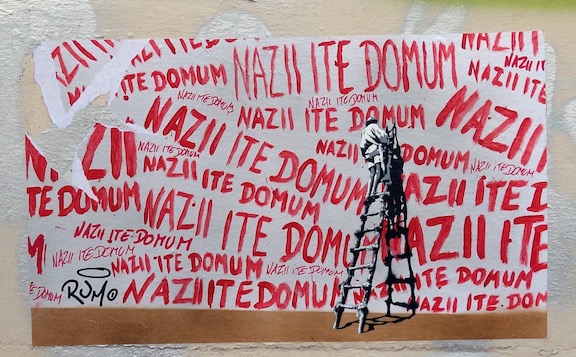 NAZII
ITE DOMUM
NAZII ITE DOMUM
NAZII ITE
NAZII ITE
NAZII ITE DOMUM
NAZII ITE DOMUM
NAZII ITE DOMUM
NAZII ITE DOMUM
NAZII
NAZII ITE DOMUM
NAZII ITE
DOMUM
NAZII ITE DOMUM
NAZII ITE DOMUM
ITE DOMUM
NAZII ITE DOMUM
NAZII ITE DOMUM
NAZII ITE DOMUM
NAZII ITE DOMUM
NAZII ITE DOMUM
ITE DOMUM
ITE
DOMUM
RUMO
NAZII ITE DOMUM
NAZII ITE DOM